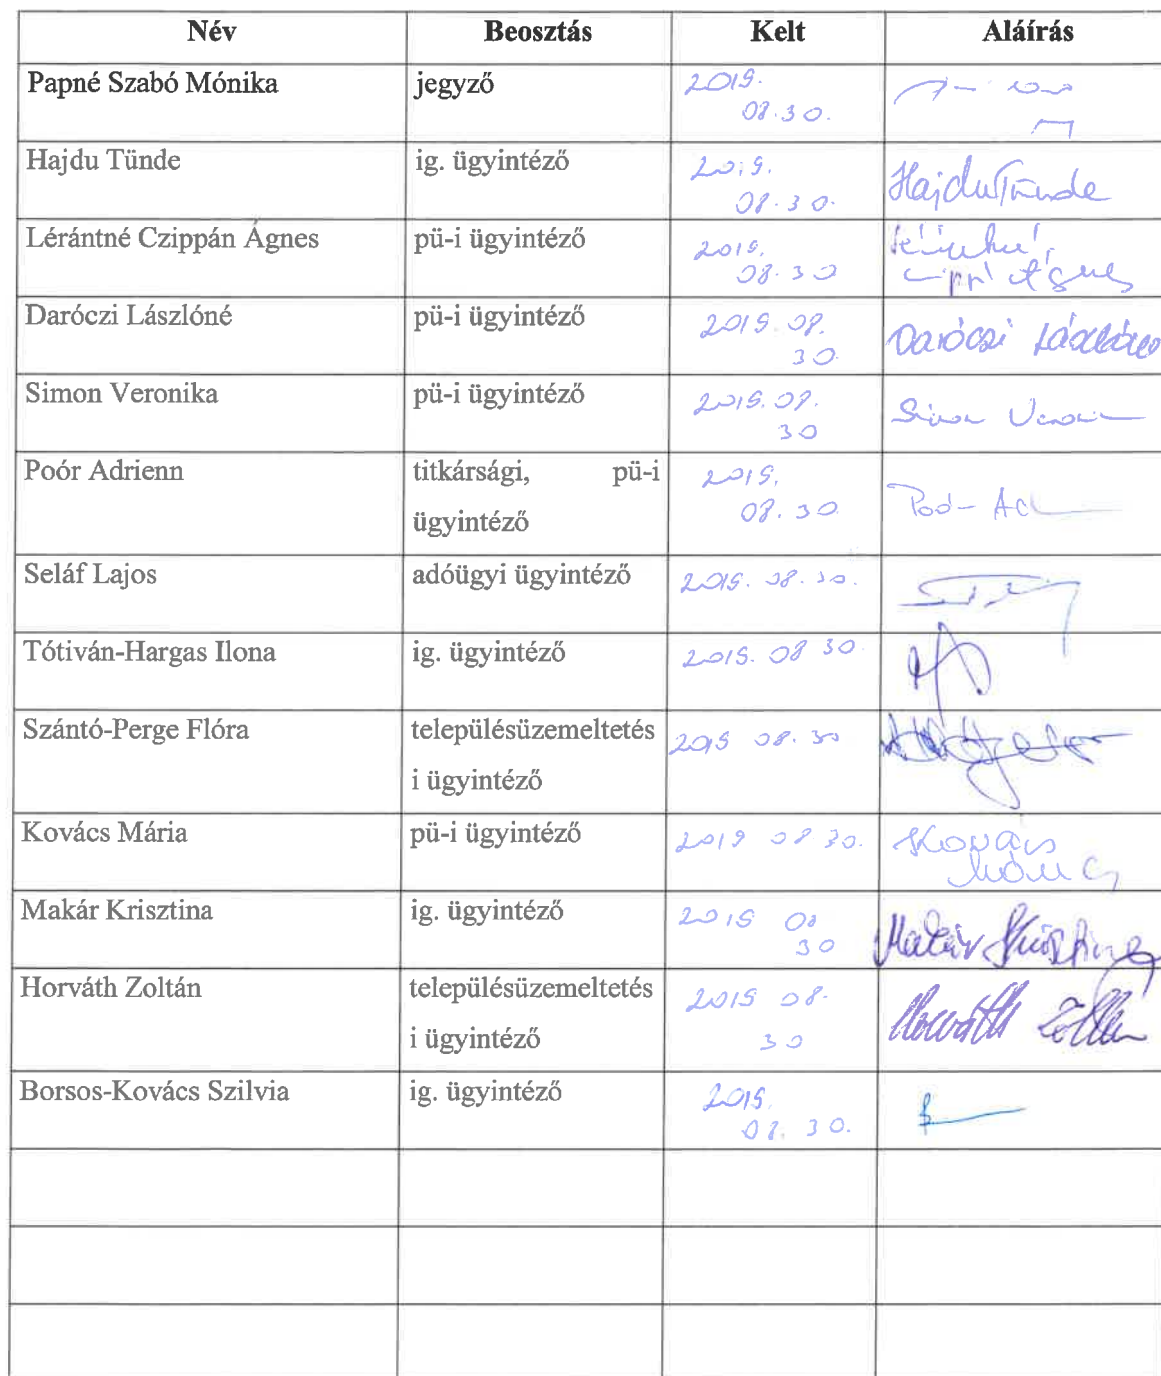 Név Beosztás Kelt Aláírás
Papné Szabó Mónika jegyző 2019.
08.30.
Hajdu Tünde ig. ügyintéző 2019. Hajdu Tünde
08.30.
Lérántné Czippán Ágnes pü-i ügyintéző 2019.
08.30 Ágnes
Daróczi Lászlóné pü-i ügyintéző 2019.08. Daróczi Lászlóné
30.
Simon Veronika pü-i ügyintéző 2019.08. Simon
30
Poór Adrienn titkársági, pü-i 2019.
ügyintéző 08.30
Seláf Lajos adóügyi ügyintéző 2019. 08.30.
Tótiván-Hargas Ilona ig. ügyintéző 2019. 08 30.
Szántó-Perge Flóra településüzemeltetés 2019 08.30
i ügyintéző
Kovács Mária pü-i ügyintéző 2019 08 30. Kovács
Mária
Makár Krisztina ig. ügyintéző 2019 08 Makár Krisztina
30
Horváth Zoltán településüzemeltetés 2019 08. Horváth Zoltán
i ügyintéző 30
Borsos-Kovács Szilvia ig. ügyintéző 2019.
08. 30.